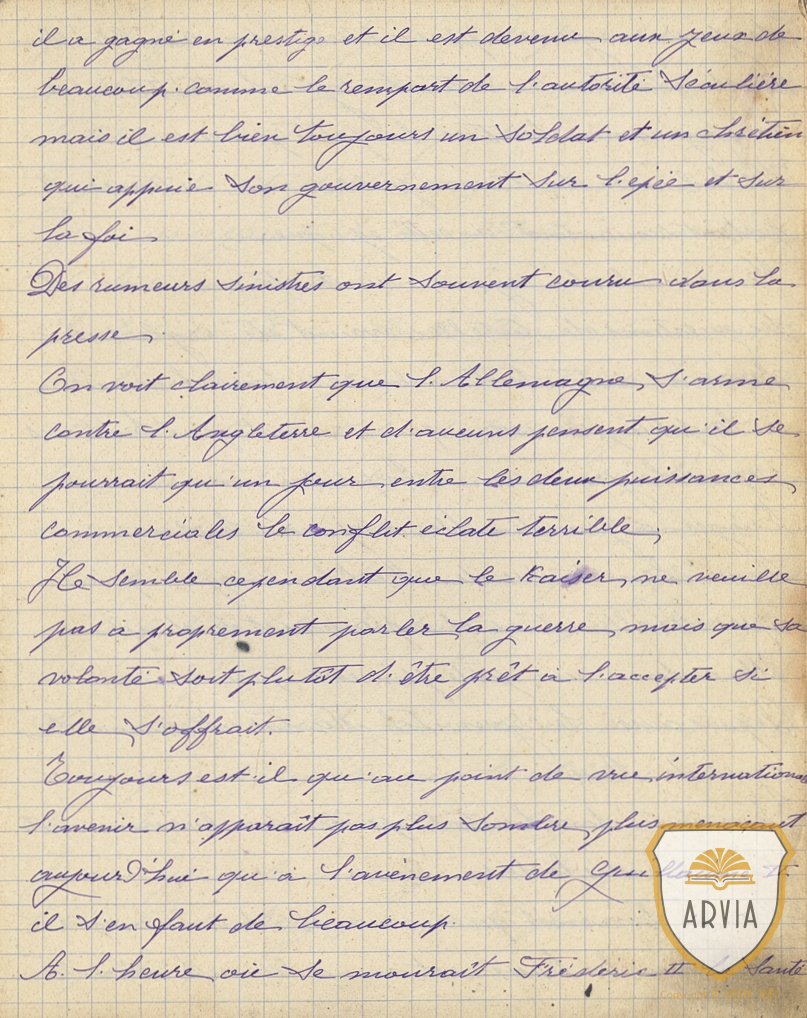 il a gagné en prestige et il est devenu aux yeux de
beaucoup comme le rempart de l'autorité séculière
mais il est bien toujours un soldat et un chrétien
qui appuie son gouvernement sur l'épée et sur
la foi
Des rumeurs sinistres ont souvent couru dans la
presse.
On voit clairement que l'Allemagne, s'arme
contre l'Angleterre et d'aucuns pensent qu'il se
pourrait qu'un jour entre les deux puissances,
commerciales le conflit éclate terrible,
Il semble cependant que le Kaiser, ne veuille
pas à proprement parler la guerre, mais que sa
volonté soit plutôt d'être prêt à l'accepter si
elle s'offrait.
Toujours est-il qu'au point de vue international
l'avenir n'apparaît pas plus sombre, plus menaçant
aujourd'hui qu'à l'avènement de Guillaume II.
il s'en faut de beaucoup.
A l'heure où se mourait Fréderic II la Santé
ARVIA